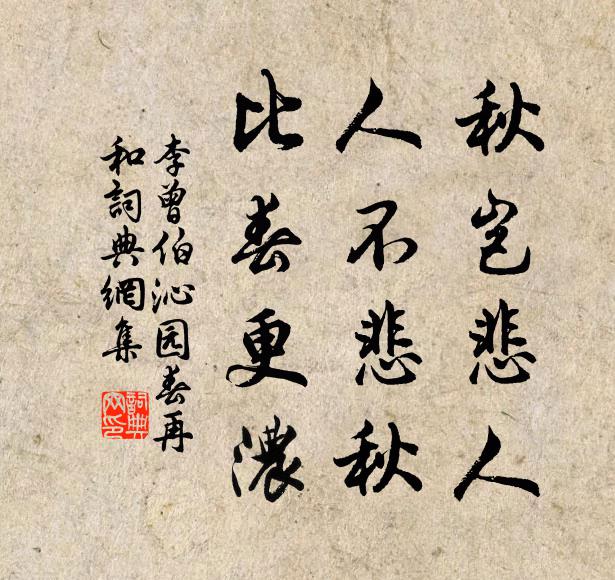 秋岂悲人
人不悲秋
比春更濃
李曾伯沁园春再
和詞典網集
詞典
网印